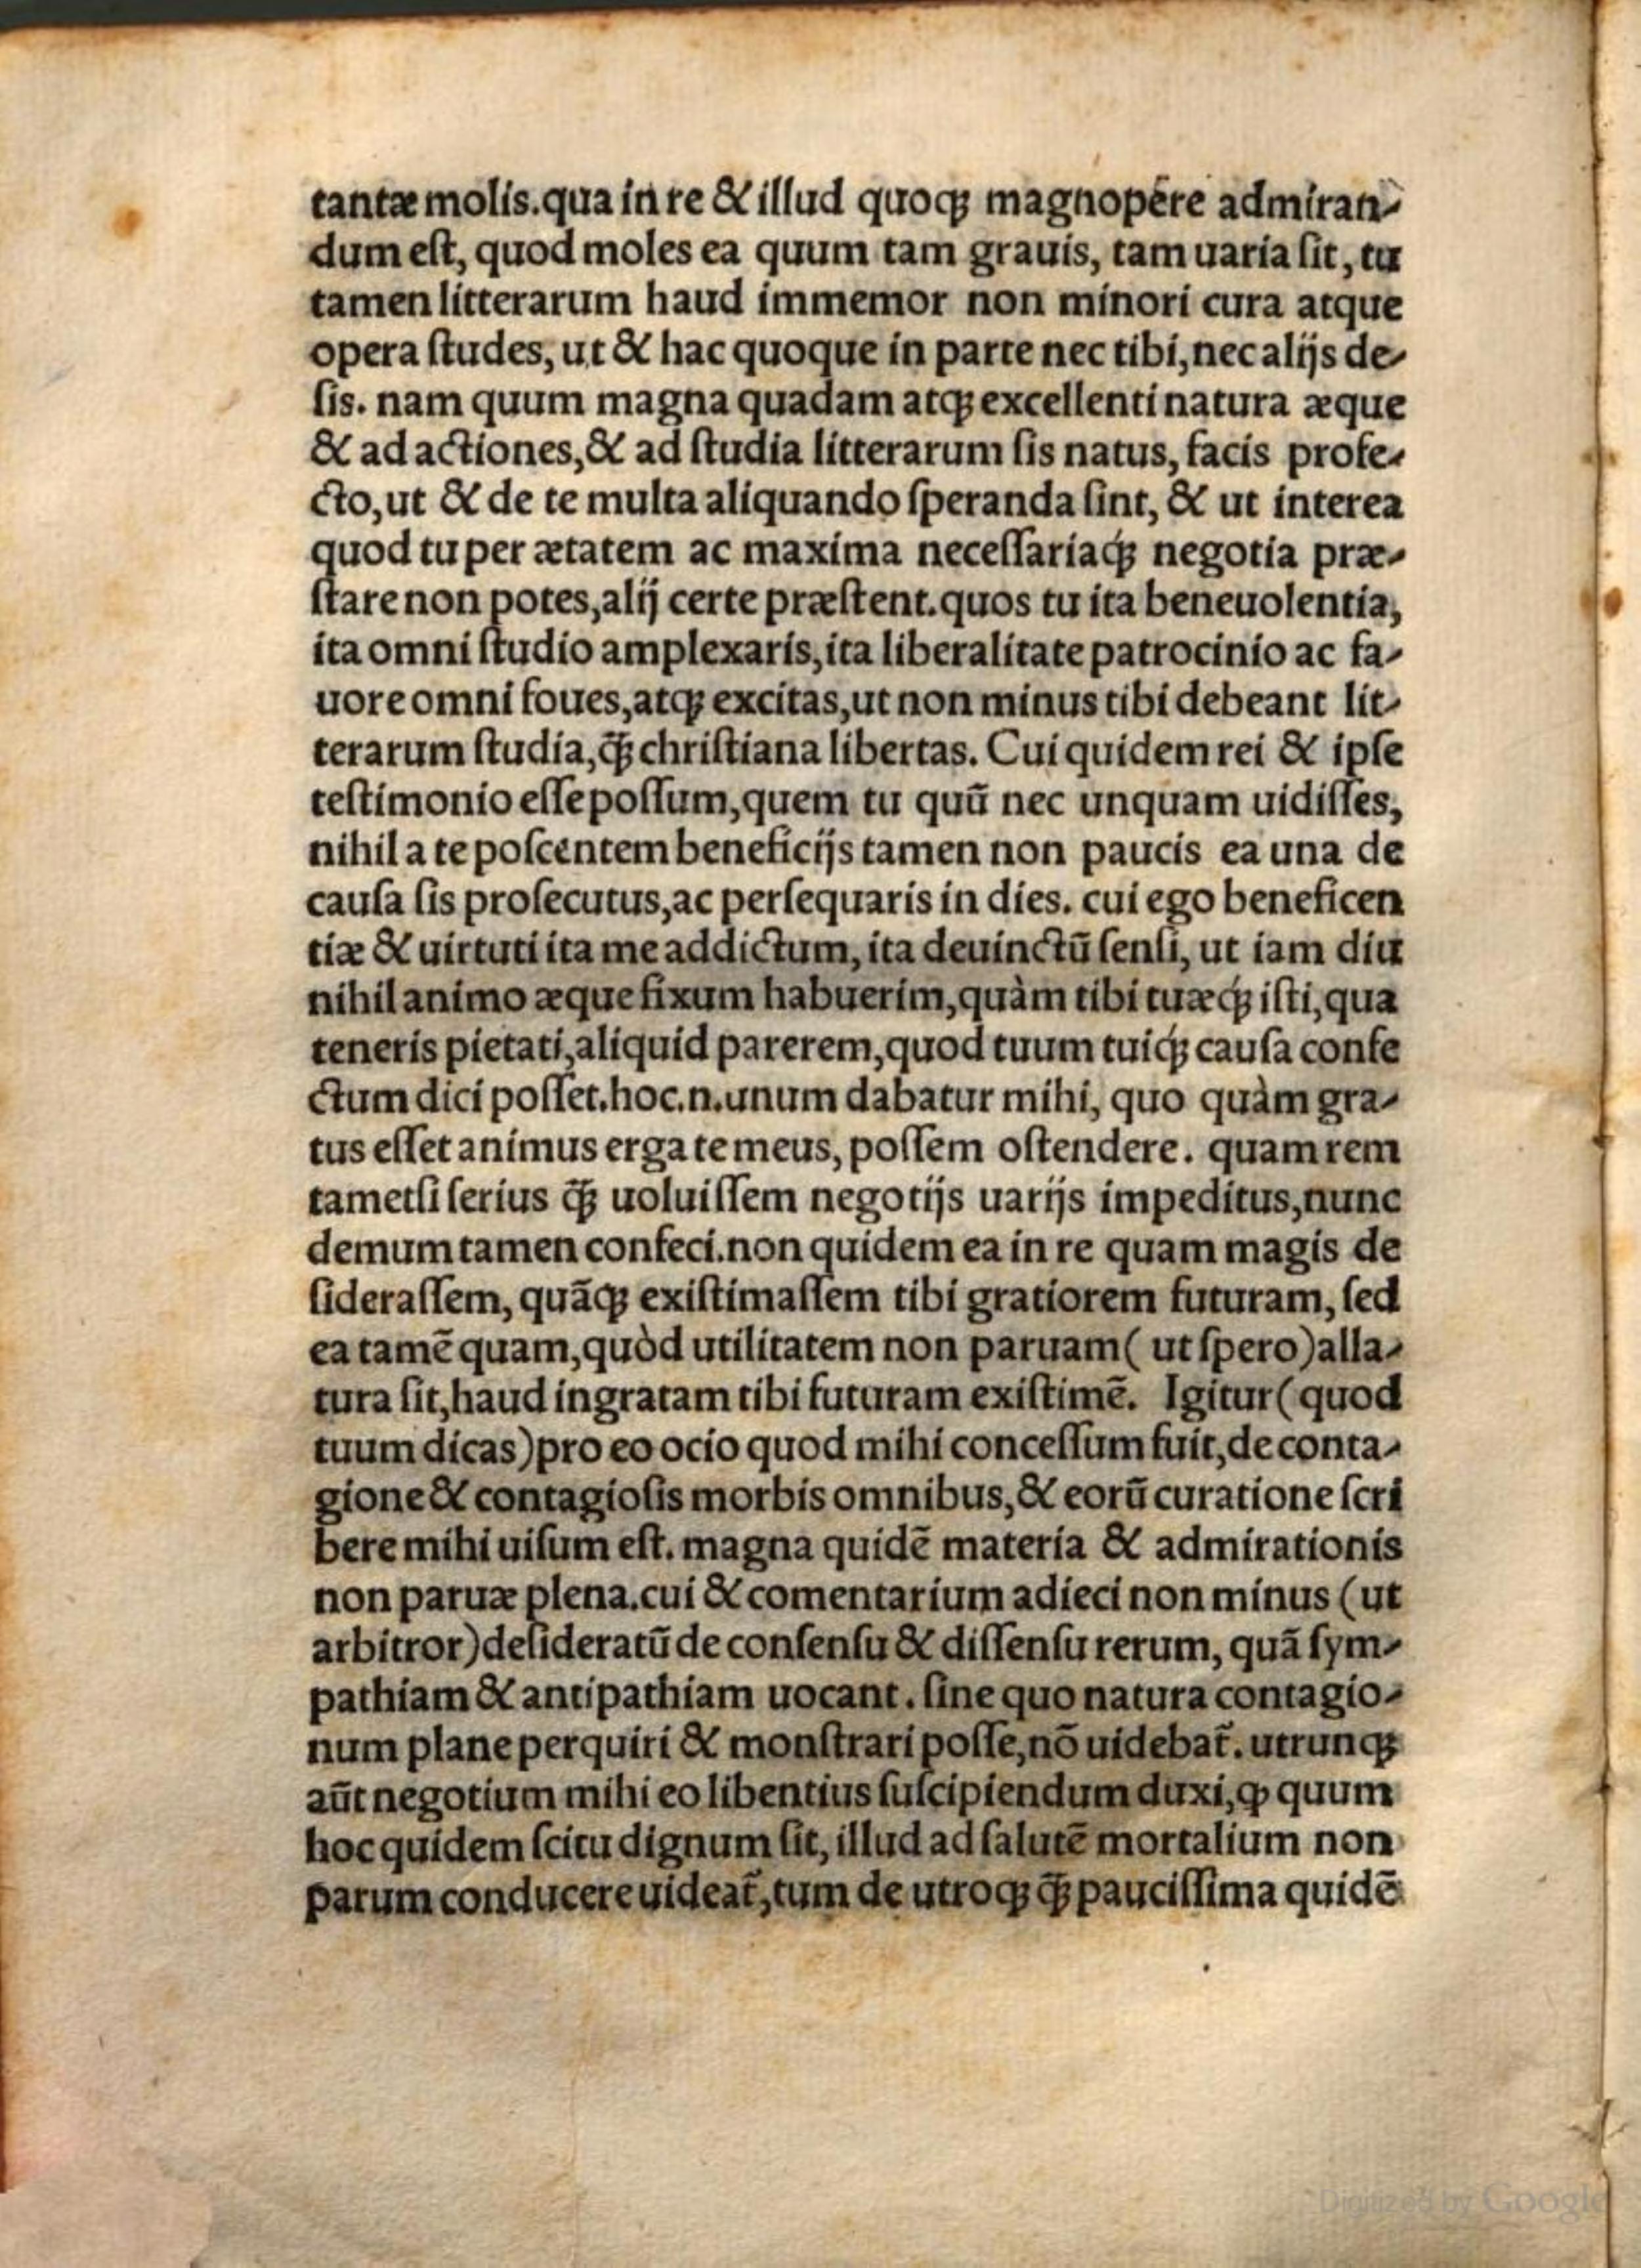 tantæ molis.qua in re & illud quoqꝫ magnopere admiran-
dum eſt, quod moles ea quum tam grauis, tam uaria ſit, tu
tamen litterarum haud immemor non minori cura atque
opera ſtudes, ut & hac quoque in parte nec tibi, nec alijs de-
ſis. nam quum magna quadam atqꝫ excellenti natura æque
& ad actiones,& ad ſtudia litterarum ſis natus, facis profe-
cto,ut & de te multa aliquando ſperanda ſint, & ut interea
quod tu per ætatem ac maxima neceſſariaq́ꝫ negotia præ-
ſtare non potes,alij certe præſtent.quos tu ita beneuolentia,
ita omni ſtudio amplexaris,ita liberalitate patrocinio ac fa-
uore omni foues,atqꝫ excitas,ut non minus tibi debeant lit-
terarum ſtudia,q̄ꝫ chriſtiana libertas. Cui quidem rei & ipſe
teſtimonio eſſe poſſum,quem tu quū nec unquam uidiſſes,
nihil a te poſcentem beneficijs tamen non paucis ea una de
cauſa ſis proſecutus,ac perſequaris in dies. cui ego beneficen
tiæ & uirtuti ita me addictum, ita deuinctū ſenſi, ut iam diu
nihil animo æque fixum habuerim,quàm tibi tuæq́ꝫ iſti,qua
teneris pietati,aliquid parerem,quod tuum tuiq́ꝫ cauſa confe
ctum dici poſſet.hoc.n.unum dabatur mihi, quo quàm gra-
tus eſſet animus erga te meus, poſſem oſtendere. quam rem
tametſi ſerius q̄ꝫ uoluiſſem negotijs uarijs impeditus,nunc
demum tamen confeci.non quidem ea in re quam magis de
ſideraſſem, quãqꝫ exiſtimaſſem tibi gratiorem futuram, ſed
ea tamē quam,quòd utilitatem non paruam( ut ſpero)alla-
tura ſit,haud ingratam tibi futuram exiſtimē. Igitur(quod
tuum dicas)pro eo ocio quod mihi conceſſum fuit,de conta-
gione & contagioſis morbis omnibus,& eorū curatione ſcri
bere mihi uiſum eſt. magna quidē materia & admirationis
non paruæ plena.cui & comentarium adieci non minus (ut
arbitror)deſideratū de conſenſu & diſſenſu rerum, quã ſym-
pathiam & antipathiam uocant. ſine quo natura contagio-
num plane perquiri & monſtrari poſſe,nō uidebat̃. utrunqꝫ
aūt negotium mihi eo libentius ſuſcipiendum duxi,ꝙ quum
hoc quidem ſcitu dignum ſit, illud ad ſalutē mortalium non
parum conducere uideat̃,tum de utroqꝫ q̄ꝫ pauciſſima quidē
Digitized by Google